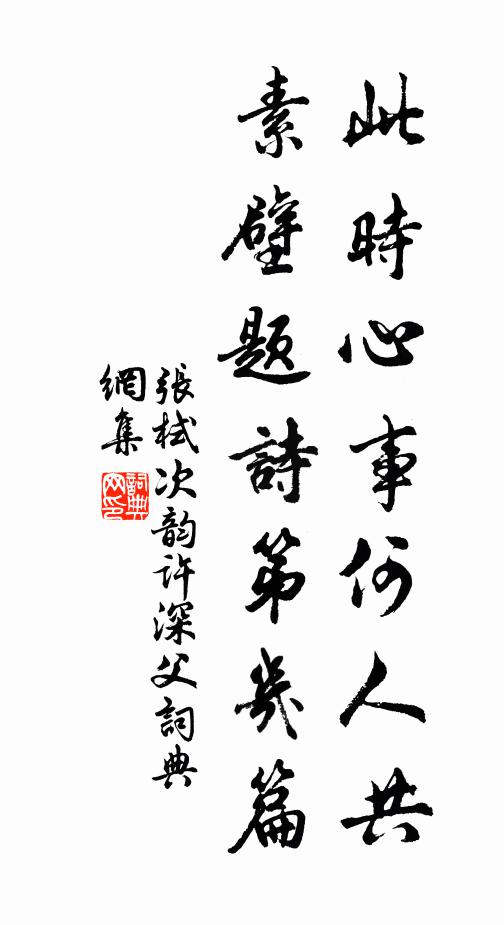 此時心事何人共
素壁題詩第幾篇
張栻次韵许深父詞典
網集
詞典
网印